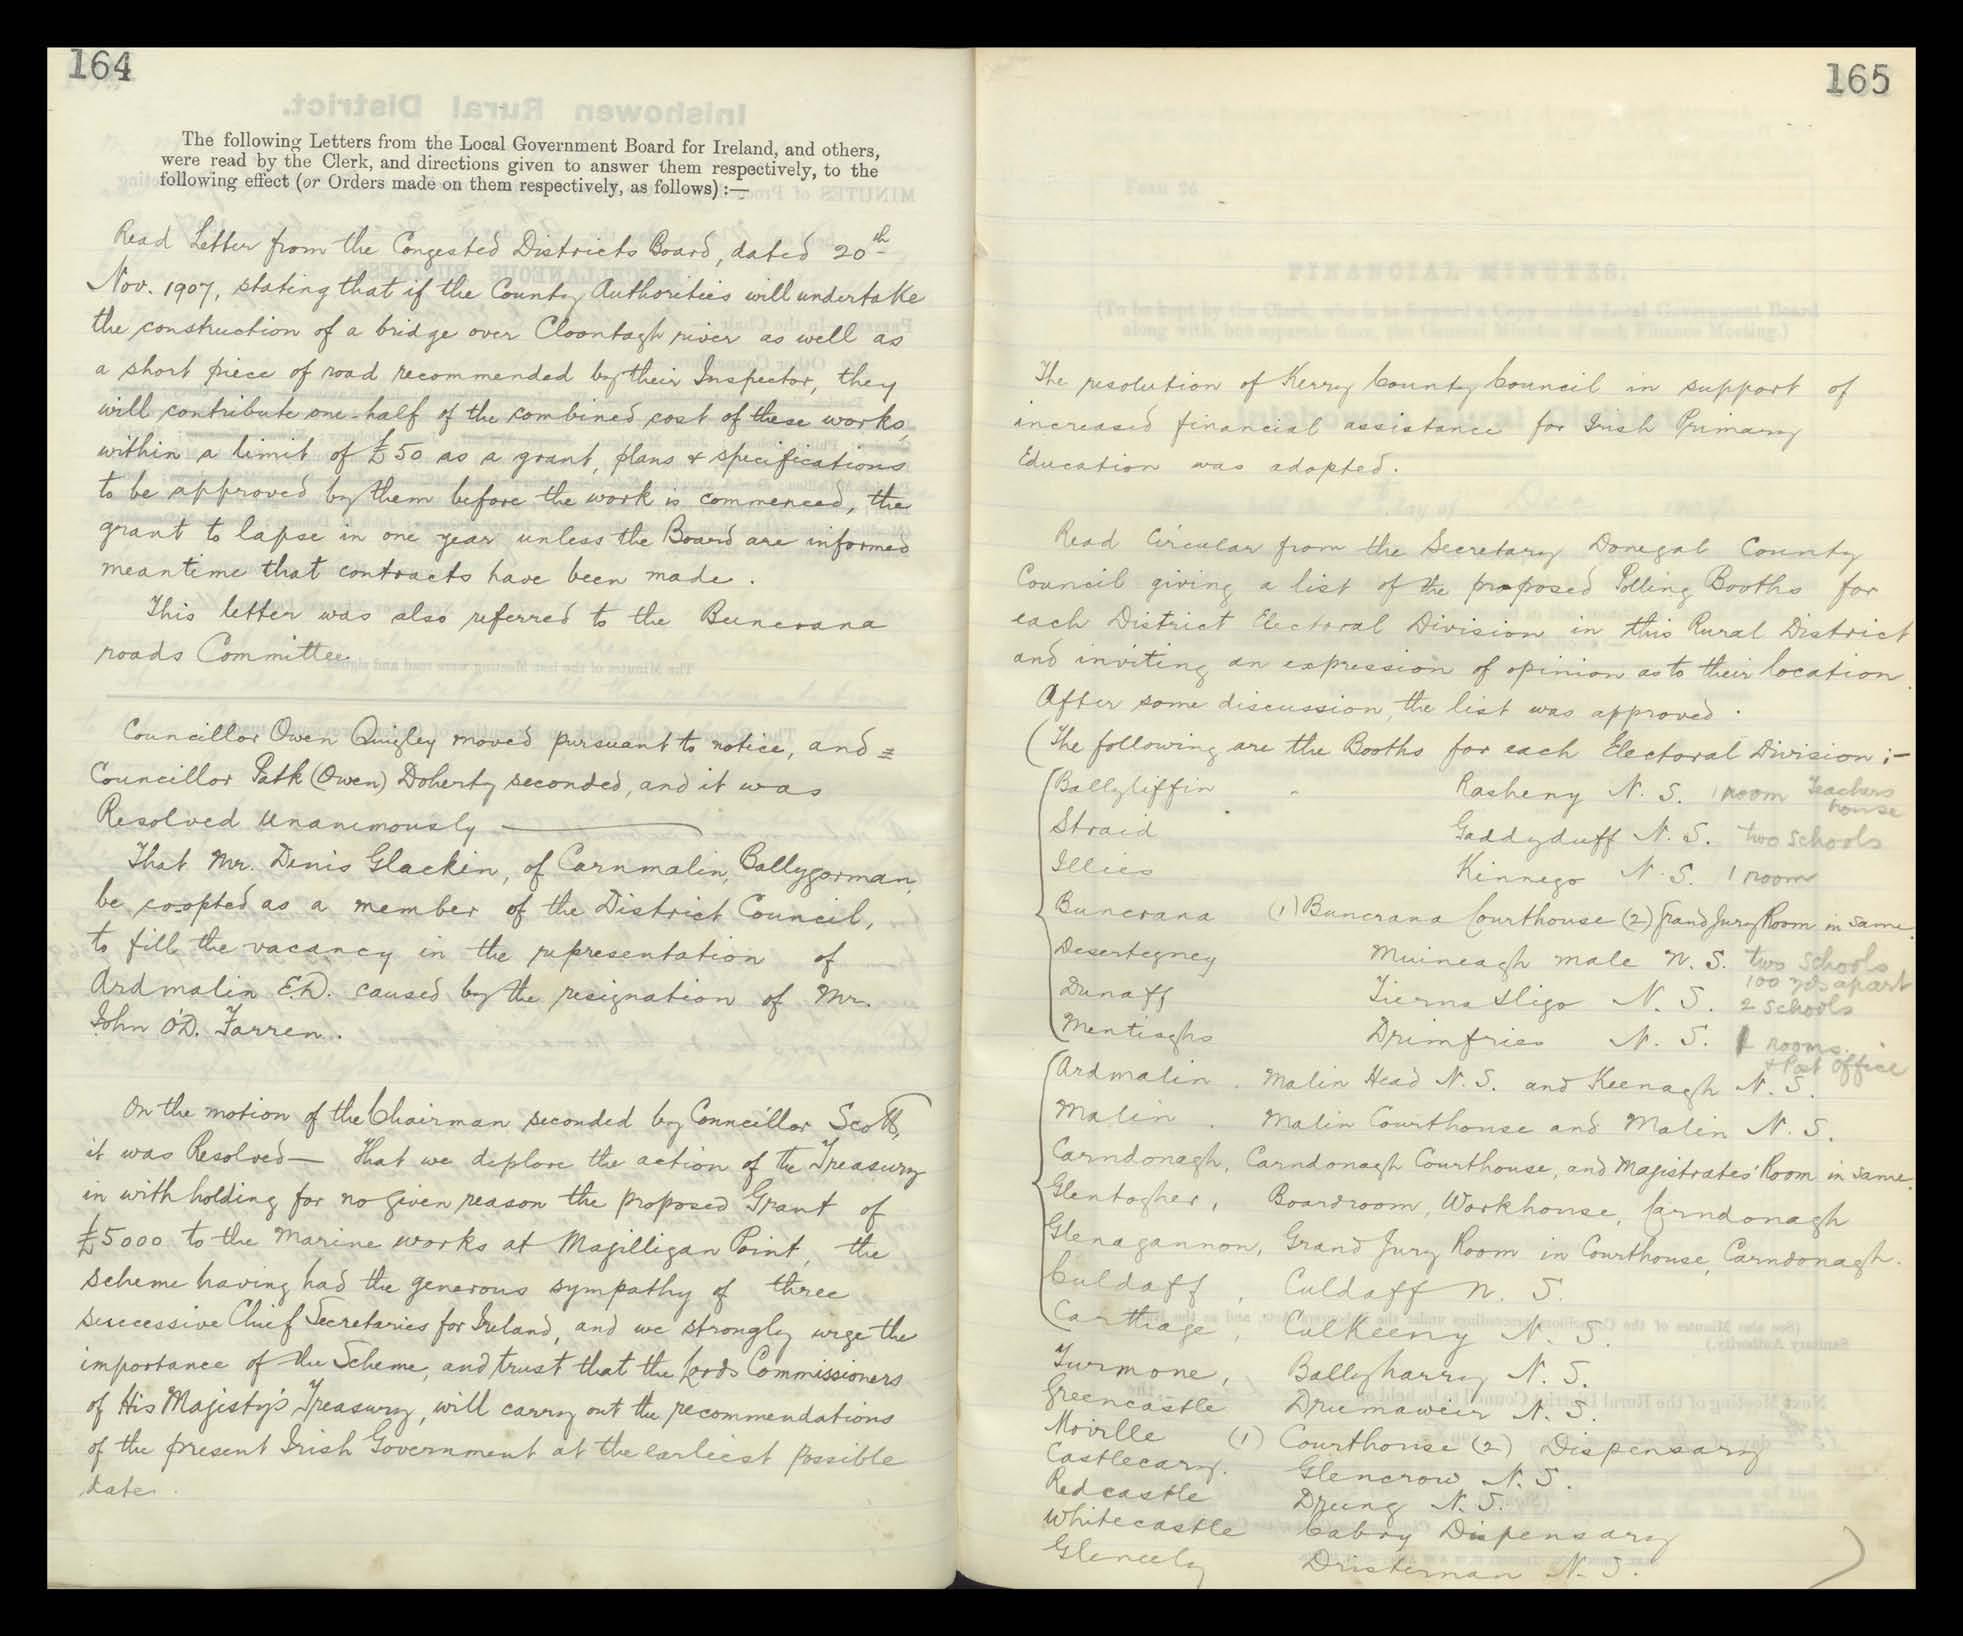 164
The following Letters from the Local Government Board for Ireland, and others,
were read by the Clerk, and directions given to answer them respectively, to the
following effect (or Orders made on them respectively, as follows) :—
Read Letter from the Congested Districts Board, dated 20th
Nov. 1907, stating that if the County Authorities will undertake
the construction of a bridge over Cloontagh river as well as
a short piece of road recommended by their Inspector, they
will contribute one-half of the combined cost of these works,
within a limit of £50 as a grant, plans & specifications
to be approved by them before the work is commenced, the
grant to lapse in one year unless the Board are informed
meantime that contracts have been made.
This letter was also referred to the Buncrana
roads Committee
Councillor Owen Quigley moved pursuant to notice, and =
Councillor Patk (Owen) Doherty seconded, and it was
Resolved Unanimously —
That Mr. Denis Glackin, of Carnmalin, Ballygorman,
be co-opted as a member of the District Council,
to fill the vacancy in the representation of
Ardmalin E.D. caused by the resignation of Mr.
John O'D. Farren.
On the motion of the Chairman seconded by Councillor Scott,
it was Resolved — That we deplore the action of the Treasury
in withholding for no given reason the proposed Grant of
£5000 to the Marine works at Magilligan Point, the
scheme having had the generous sympathy of three
successive Chief Secretaries for Ireland, and we strongly urge the
importance of the Scheme, and trust that the Lords Commissioners
of His Majesty's Treasury, will carry out the recommendations
of the present Irish Government at the earliest possible
date.
165
The resolution of Kerry County Council in support of
increased financial assistance for Irish Primary
Education was adopted.
Read Circular from the Secretary Donegal County
Council giving a list of the proposed Polling Booths for
each District Electoral Division in this Rural District
and inviting an expression of opinion as to their location.
After some discussion, the list was approved.
(The following are the Booths for each Electoral Division :-
Ballyliffin Rasheny N. S. 1 room Teachers house
Straid Gaddyduff N. S. two schools
Illies Kinnego N. S. 1 room
Buncrana (1) Buncrana Courthouse (2) Grand Jury Room in same.
Desertegney Muineagh male N. S. two schools 100 yds apart
Dunaff Tierna Sligo N. S. 2 schools
Mentiaghs Drimfries N. S. rooms. & Post Office
Ardmalin . Malin Head N. S. and Keenagh N. S.
Malin . Malin Courthouse and Malin N. S.
Carndonagh, Carndonagh Courthouse, and Magistrates' Room in same.
Glentogher, Boardroom, Workhouse, Carndonagh
Glenagannon, Grand Jury Room in Courthouse, Carndonagh.
Culdaff, Culdaff N. S.
Carthage, Culkeeny N. S.
Turmone, Ballyharry N. S.
Greencastle Drumaweir N. S.
Moville (1) Courthouse (2) Dispensary
Castlecary. Glencrow N. S.
Redcastle Drung N. S.
Whitecastle Cabry Dispensary
Gleneely Dristernan N. S. )